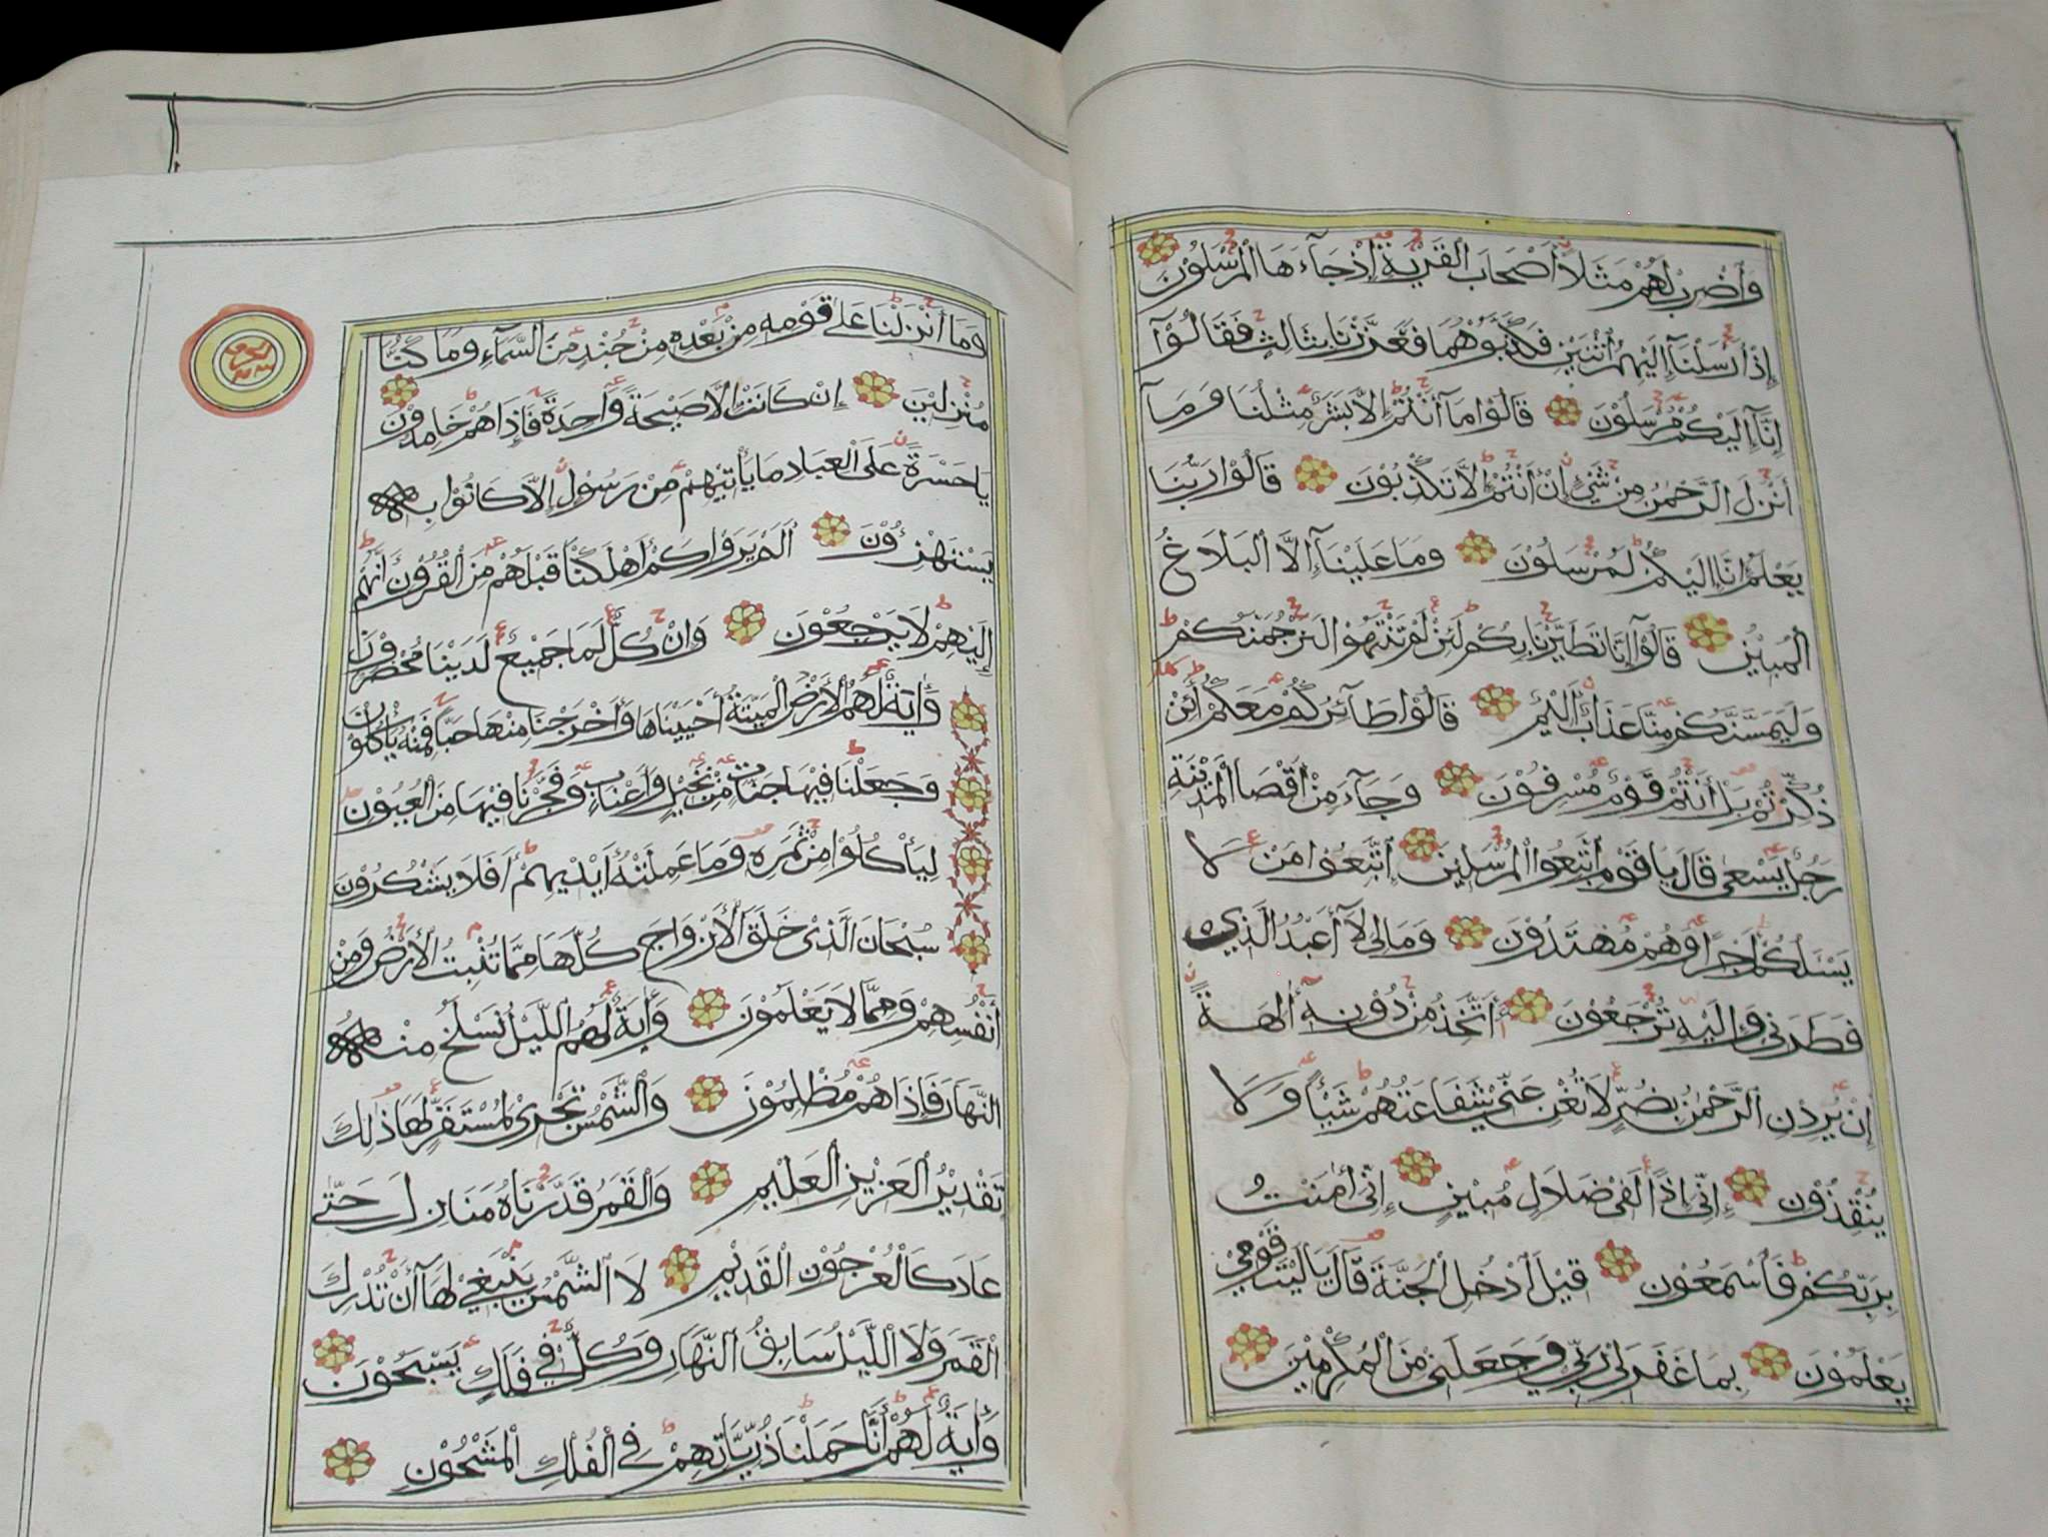 وَاضْرِبْ لَهُمْ مَثَلًا أَصْحَابَ الْقَرْيَةِ إِذْ جَآءَهَا الْمُرْسَلُوْنَ
إِذْ أَرْسَلْنَآ إِلَيْهِمُ اثْنَيْنِ فَكَذَّبُوْهُمَا فَعَزَّزْنَا بِثَالِثٍ فَقَالُوْآ
إِنَّآ إِلَيْكُمْ مُرْسَلُوْنَ قَالُوْا مَآ أَنْتُمْ إِلَّا بَشَرٌ مِثْلُنَا وَمَآ
أَنْزَلَ الرَّحْمٰنُ مِنْ شَيْءٍ إِنْ أَنْتُمْ إِلَّا تَكْذِبُوْنَ قَالُوْا رَبُّنَا
يَعْلَمُ إِنَّا إِلَيْكُمْ لَمُرْسَلُوْنَ وَمَا عَلَيْنَآ إِلَّا الْبَلَاغُ
الْمُبِيْنُ قَالُوْآ إِنَّا تَطَيَّرْنَا بِكُمْ لَئِنْ لَمْ تَنْتَهُوْا لَنَرْجُمَنَّكُمْ
وَلَيَمَسَّنَّكُمْ مِنَّا عَذَابٌ أَلِيْمٌ قَالُوْا طَآئِرُكُمْ مَعَكُمْ أَئِنْ
ذُكِّرْتُمْ بَلْ أَنْتُمْ قَوْمٌ مُسْرِفُوْنَ وَجَآءَ مِنْ أَقْصَا الْمَدِيْنَةِ
رَجُلٌ يَسْعٰى قَالَ يَا قَوْمِ اتَّبِعُوا الْمُرْسَلِيْنَ اِتَّبِعُوْا مَنْ لَا
يَسْئَلُكُمْ أَجْرًا وَهُمْ مُهْتَدُوْنَ وَمَا لِيَ لَآ أَعْبُدُ الَّذِيْ
فَطَرَنِيْ وَإِلَيْهِ تُرْجَعُوْنَ ءَأَتَّخِذُ مِنْ دُوْنِهٓ اٰلِهَةً
إِنْ يُرِدْنِ الرَّحْمٰنُ بِضُرٍّ لَا تُغْنِ عَنِّيْ شَفَاعَتُهُمْ شَيْئًا وَلَا
يُنْقِذُوْنِ إِنِّيْ إِذًا لَفِيْ ضَلَالٍ مُبِيْنٍ إِنِّيْ اٰمَنْتُ
بِرَبِّكُمْ فَاسْمَعُوْنِ قِيْلَ ادْخُلِ الْجَنَّةَ قَالَ يَا لَيْتَ قَوْمِيْ
يَعْلَمُوْنَ بِمَا غَفَرَ لِيْ رَبِّيْ وَجَعَلَنِيْ مِنَ الْمُكْرَمِيْنَ
وَمَا أَنْزَلْنَا عَلٰى قَوْمِهِ مِنْ بَعْدِهِ مِنْ جُنْدٍ مِنَ السَّمَآءِ وَمَا كُنَّا
مُنْزِلِيْنَ إِنْ كَانَتْ إِلَّا صَيْحَةً وَاحِدَةً فَإِذَا هُمْ خَامِدُوْنَ
يَا حَسْرَةً عَلَى الْعِبَادِ مَا يَأْتِيْهِمْ مِنْ رَسُوْلٍ إِلَّا كَانُوْا بِهِ
يَسْتَهْزِءُوْنَ أَلَمْ يَرَوْا كَمْ أَهْلَكْنَا قَبْلَهُمْ مِنَ الْقُرُوْنِ أَنَّهُمْ
إِلَيْهِمْ لَا يَرْجِعُوْنَ وَإِنْ كُلٌّ لَمَا جَمِيْعٌ لَدَيْنَا مُحْضَرُوْنَ
وَاٰيَةٌ لَهُمُ الْأَرْضُ الْمَيْتَةُ أَحْيَيْنَاهَا وَأَخْرَجْنَا مِنْهَا حَبًّا فَمِنْهُ يَأْكُلُوْنَ
وَجَعَلْنَا فِيْهَا جَنَّاتٍ مِنْ نَخِيْلٍ وَأَعْنَابٍ وَفَجَّرْنَا فِيْهَا مِنَ الْعُيُوْنِ
لِيَأْكُلُوْا مِنْ ثَمَرِهِ وَمَا عَمِلَتْهُ أَيْدِيْهِمْ أَفَلَا يَشْكُرُوْنَ
سُبْحَانَ الَّذِيْ خَلَقَ الْأَزْوَاجَ كُلَّهَا مِمَّا تُنْبِتُ الْأَرْضُ وَمِنْ
أَنْفُسِهِمْ وَمِمَّا لَا يَعْلَمُوْنَ وَاٰيَةٌ لَهُمُ اللَّيْلُ نَسْلَخُ مِنْهُ
النَّهَارَ فَإِذَا هُمْ مُظْلِمُوْنَ وَالشَّمْسُ تَجْرِيْ لِمُسْتَقَرٍّ لَهَا ذٰلِكَ
تَقْدِيْرُ الْعَزِيْزِ الْعَلِيْمِ وَالْقَمَرَ قَدَّرْنَاهُ مَنَازِلَ حَتّٰى
عَادَ كَالْعُرْجُوْنِ الْقَدِيْمِ لَا الشَّمْسُ يَنْبَغِيْ لَهَآ أَنْ تُدْرِكَ
الْقَمَرَ وَلَا اللَّيْلُ سَابِقُ النَّهَارِ وَكُلٌّ فِيْ فَلَكٍ يَسْبَحُوْنَ
وَاٰيَةٌ لَهُمْ أَنَّا حَمَلْنَا ذُرِّيَّاتِهِمْ فِي الْفُلْكِ الْمَشْحُوْنِ